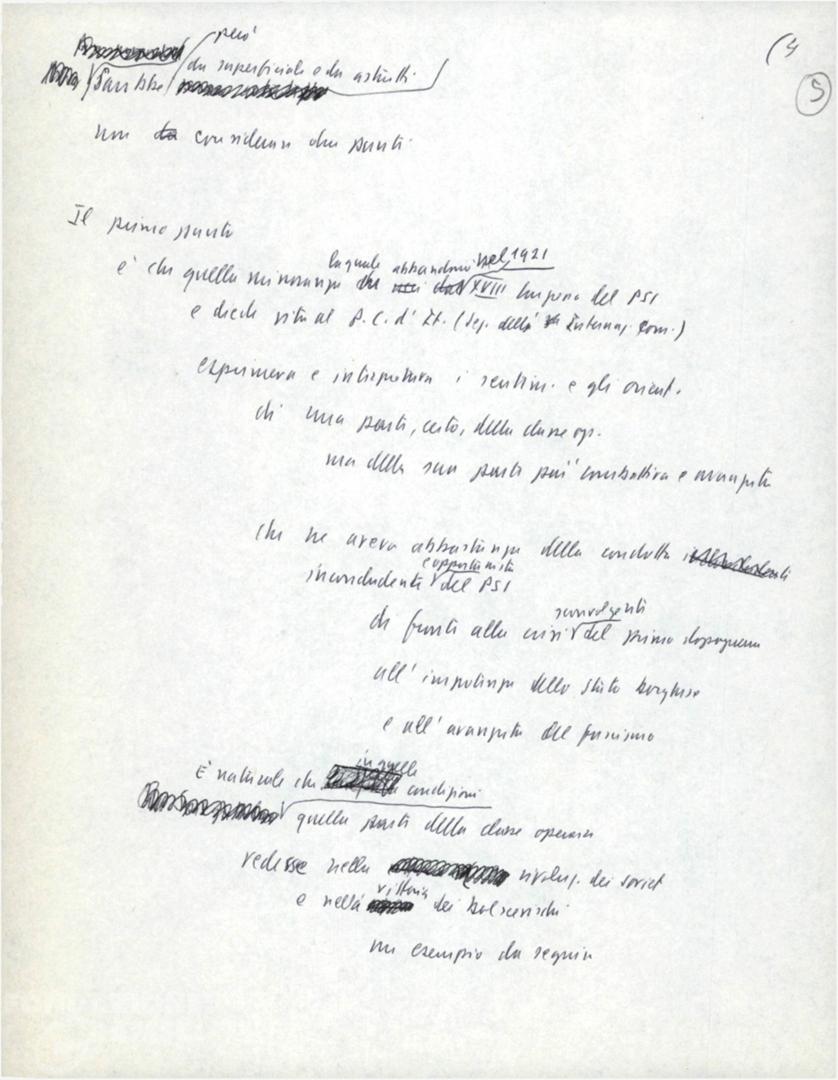 (4
5
però
Sarebbe da superficiale e da astratti
non considerare due punti
Il primo punto
la quale abbandonò nel 1921
è che quella minoranza XVIII Congresso del PSI
e diede vita al P.C. d'It. (Sez. della Internaz. Com.)
esprimeva e interpretava i sentim. e gli orient.
di una parte, certo, della classe op.
ma della sua parte più combattiva e avanzata
che ne aveva abbastanza della condotta
e opportunista
inconcludente del PSI
sconvolgenti
di fronte alla crisi del primo dopoguerra
all'impotenza dello Stato borghese
e all'avanzata del fascismo
in quelle
È naturale che condizioni
quella parte della classe operaia
vedesse nella rivoluz. dei soviet
vittoria
e nella dei bolscevichi
un esempio da seguire